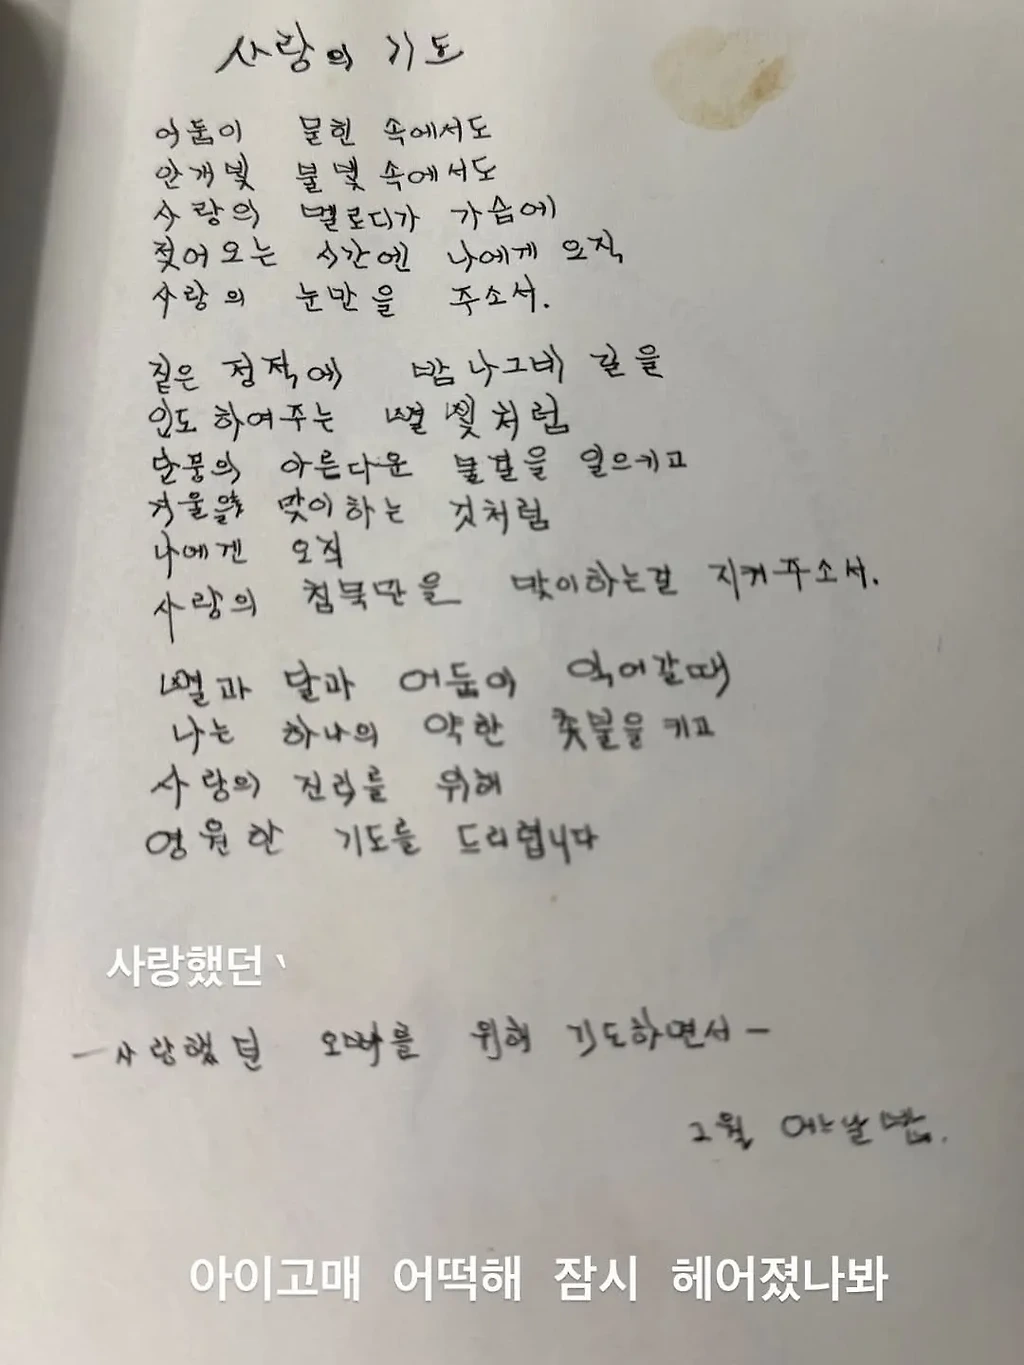 사랑의 기도
어둠이 묻힌 속에서도
안개빛 불빛 속에서도
사랑의 멜로디가 가슴에
젖어오는 시간엔 나에게 오직
사랑의 눈만을 주소서.
짙은 정적에 밤 나그네 길을
인도 하여주는 별빛처럼
단풍의 아름다운 불길을 일으키고
겨울을 맞이하는 것처럼
나에겐 오직
사랑의 침묵만을 맞이하는걸 지켜주소서.
별과 달과 어둠이 익어갈때
나는 하나의 약한 촛불을 키고
사랑의 진리를 위해
영원한 기도를 드리렵니다
사랑했던
- 사랑했던 오빠를 위해 기도하면서 -
2월 어느날 밤.
아이고매 어떡해 잠시 헤어졌나봐